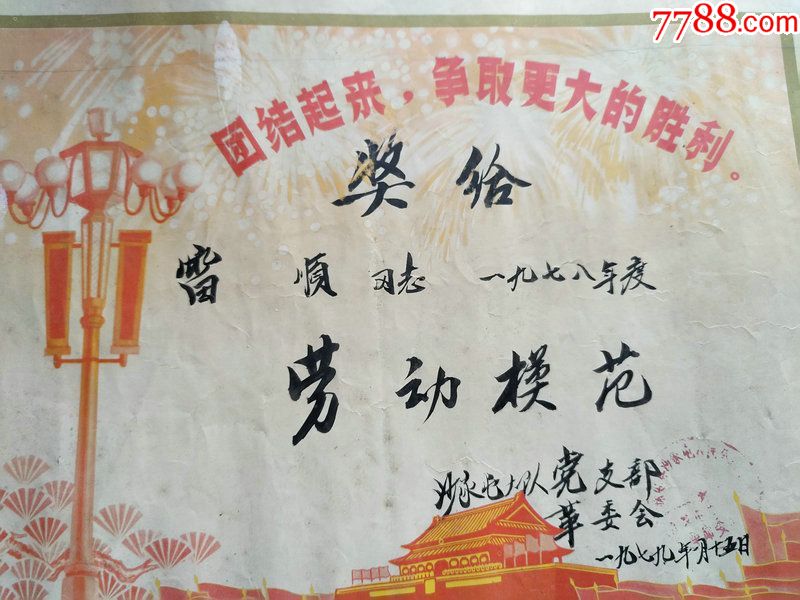 7788.com
团结起来，争取更大的胜利。
奖给
顺同志 一九七八年度
劳动模范
大队党支部
革委会
一九七九年一月十五日